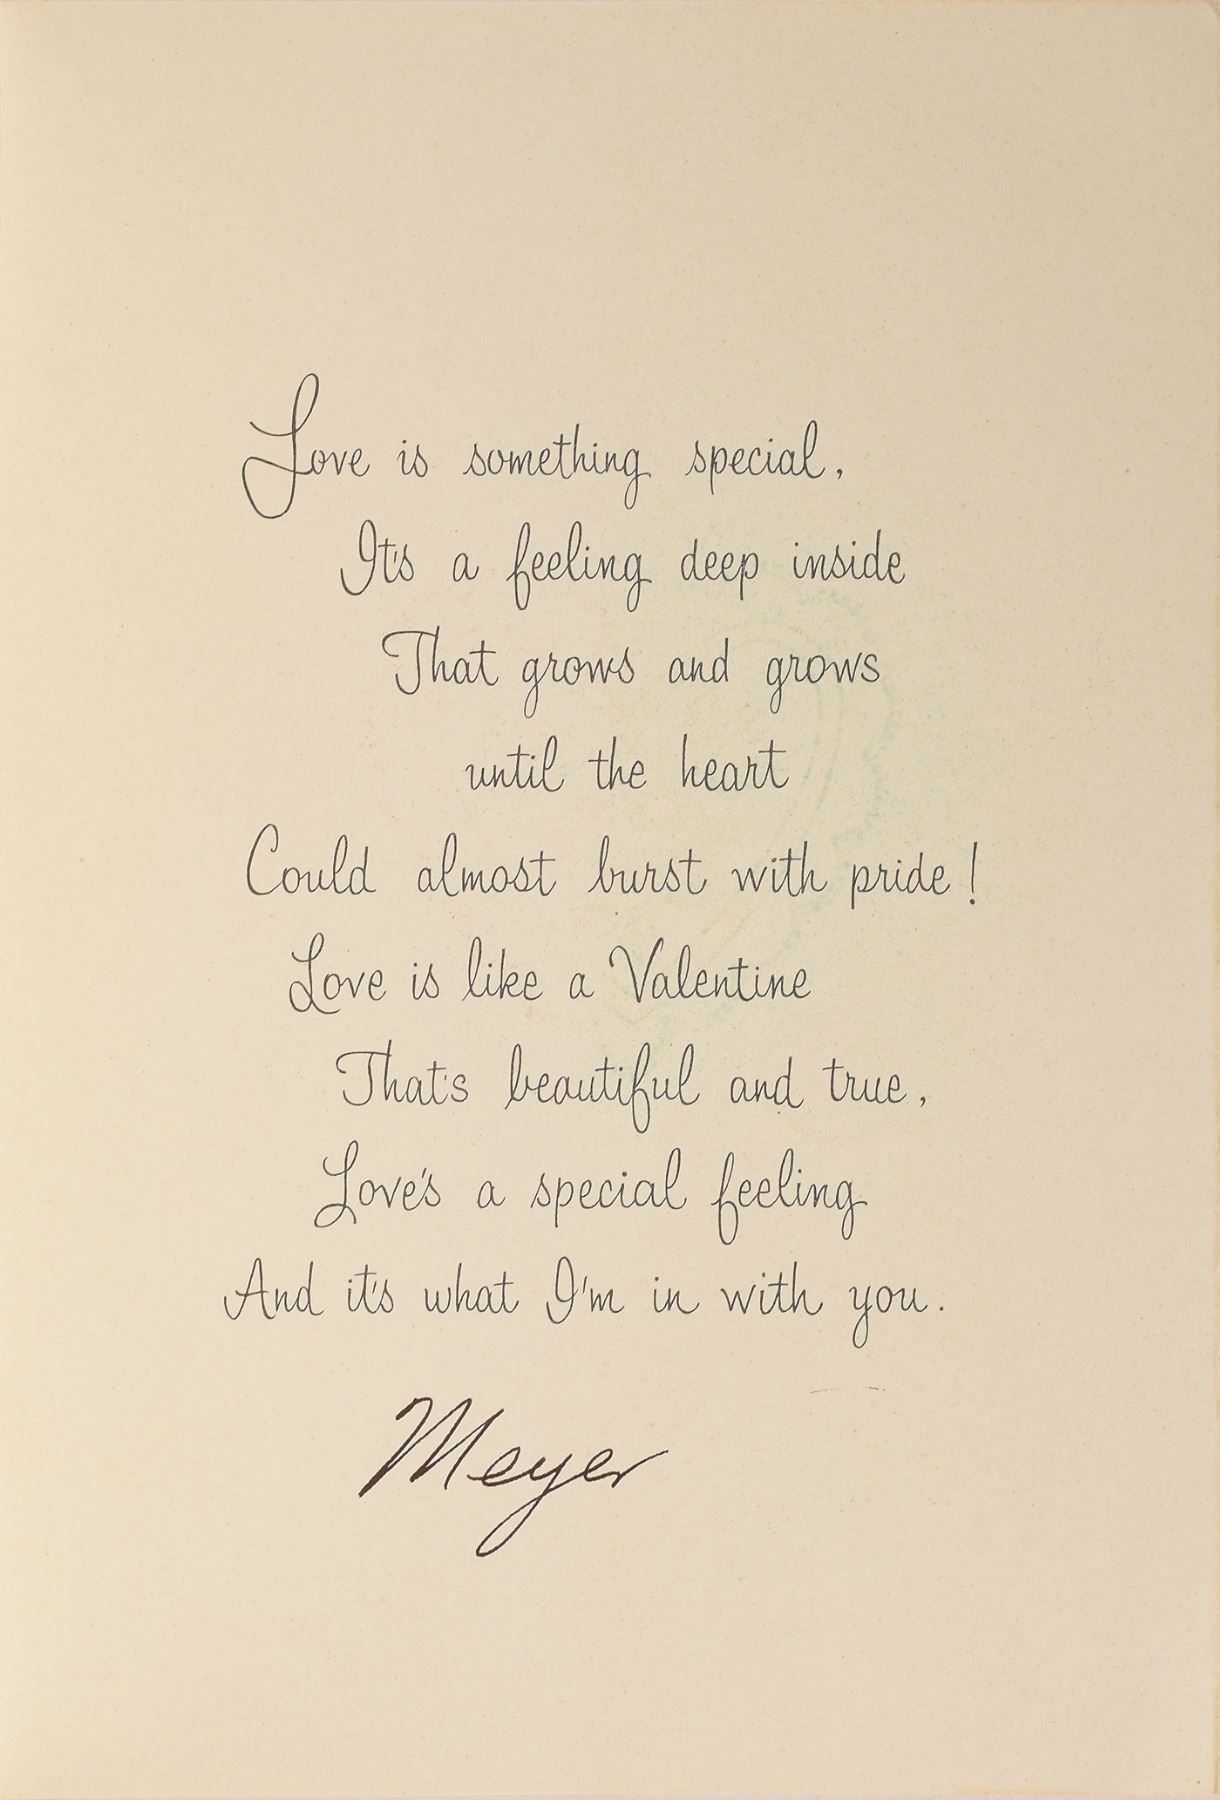 Love is something special,
It's a feeling deep inside
That grows and grows
until the heart
Could almost burst with pride!
Love is like a Valentine
That's beautiful and true,
Love's a special feeling
And it's what I'm in with you.
Meyer